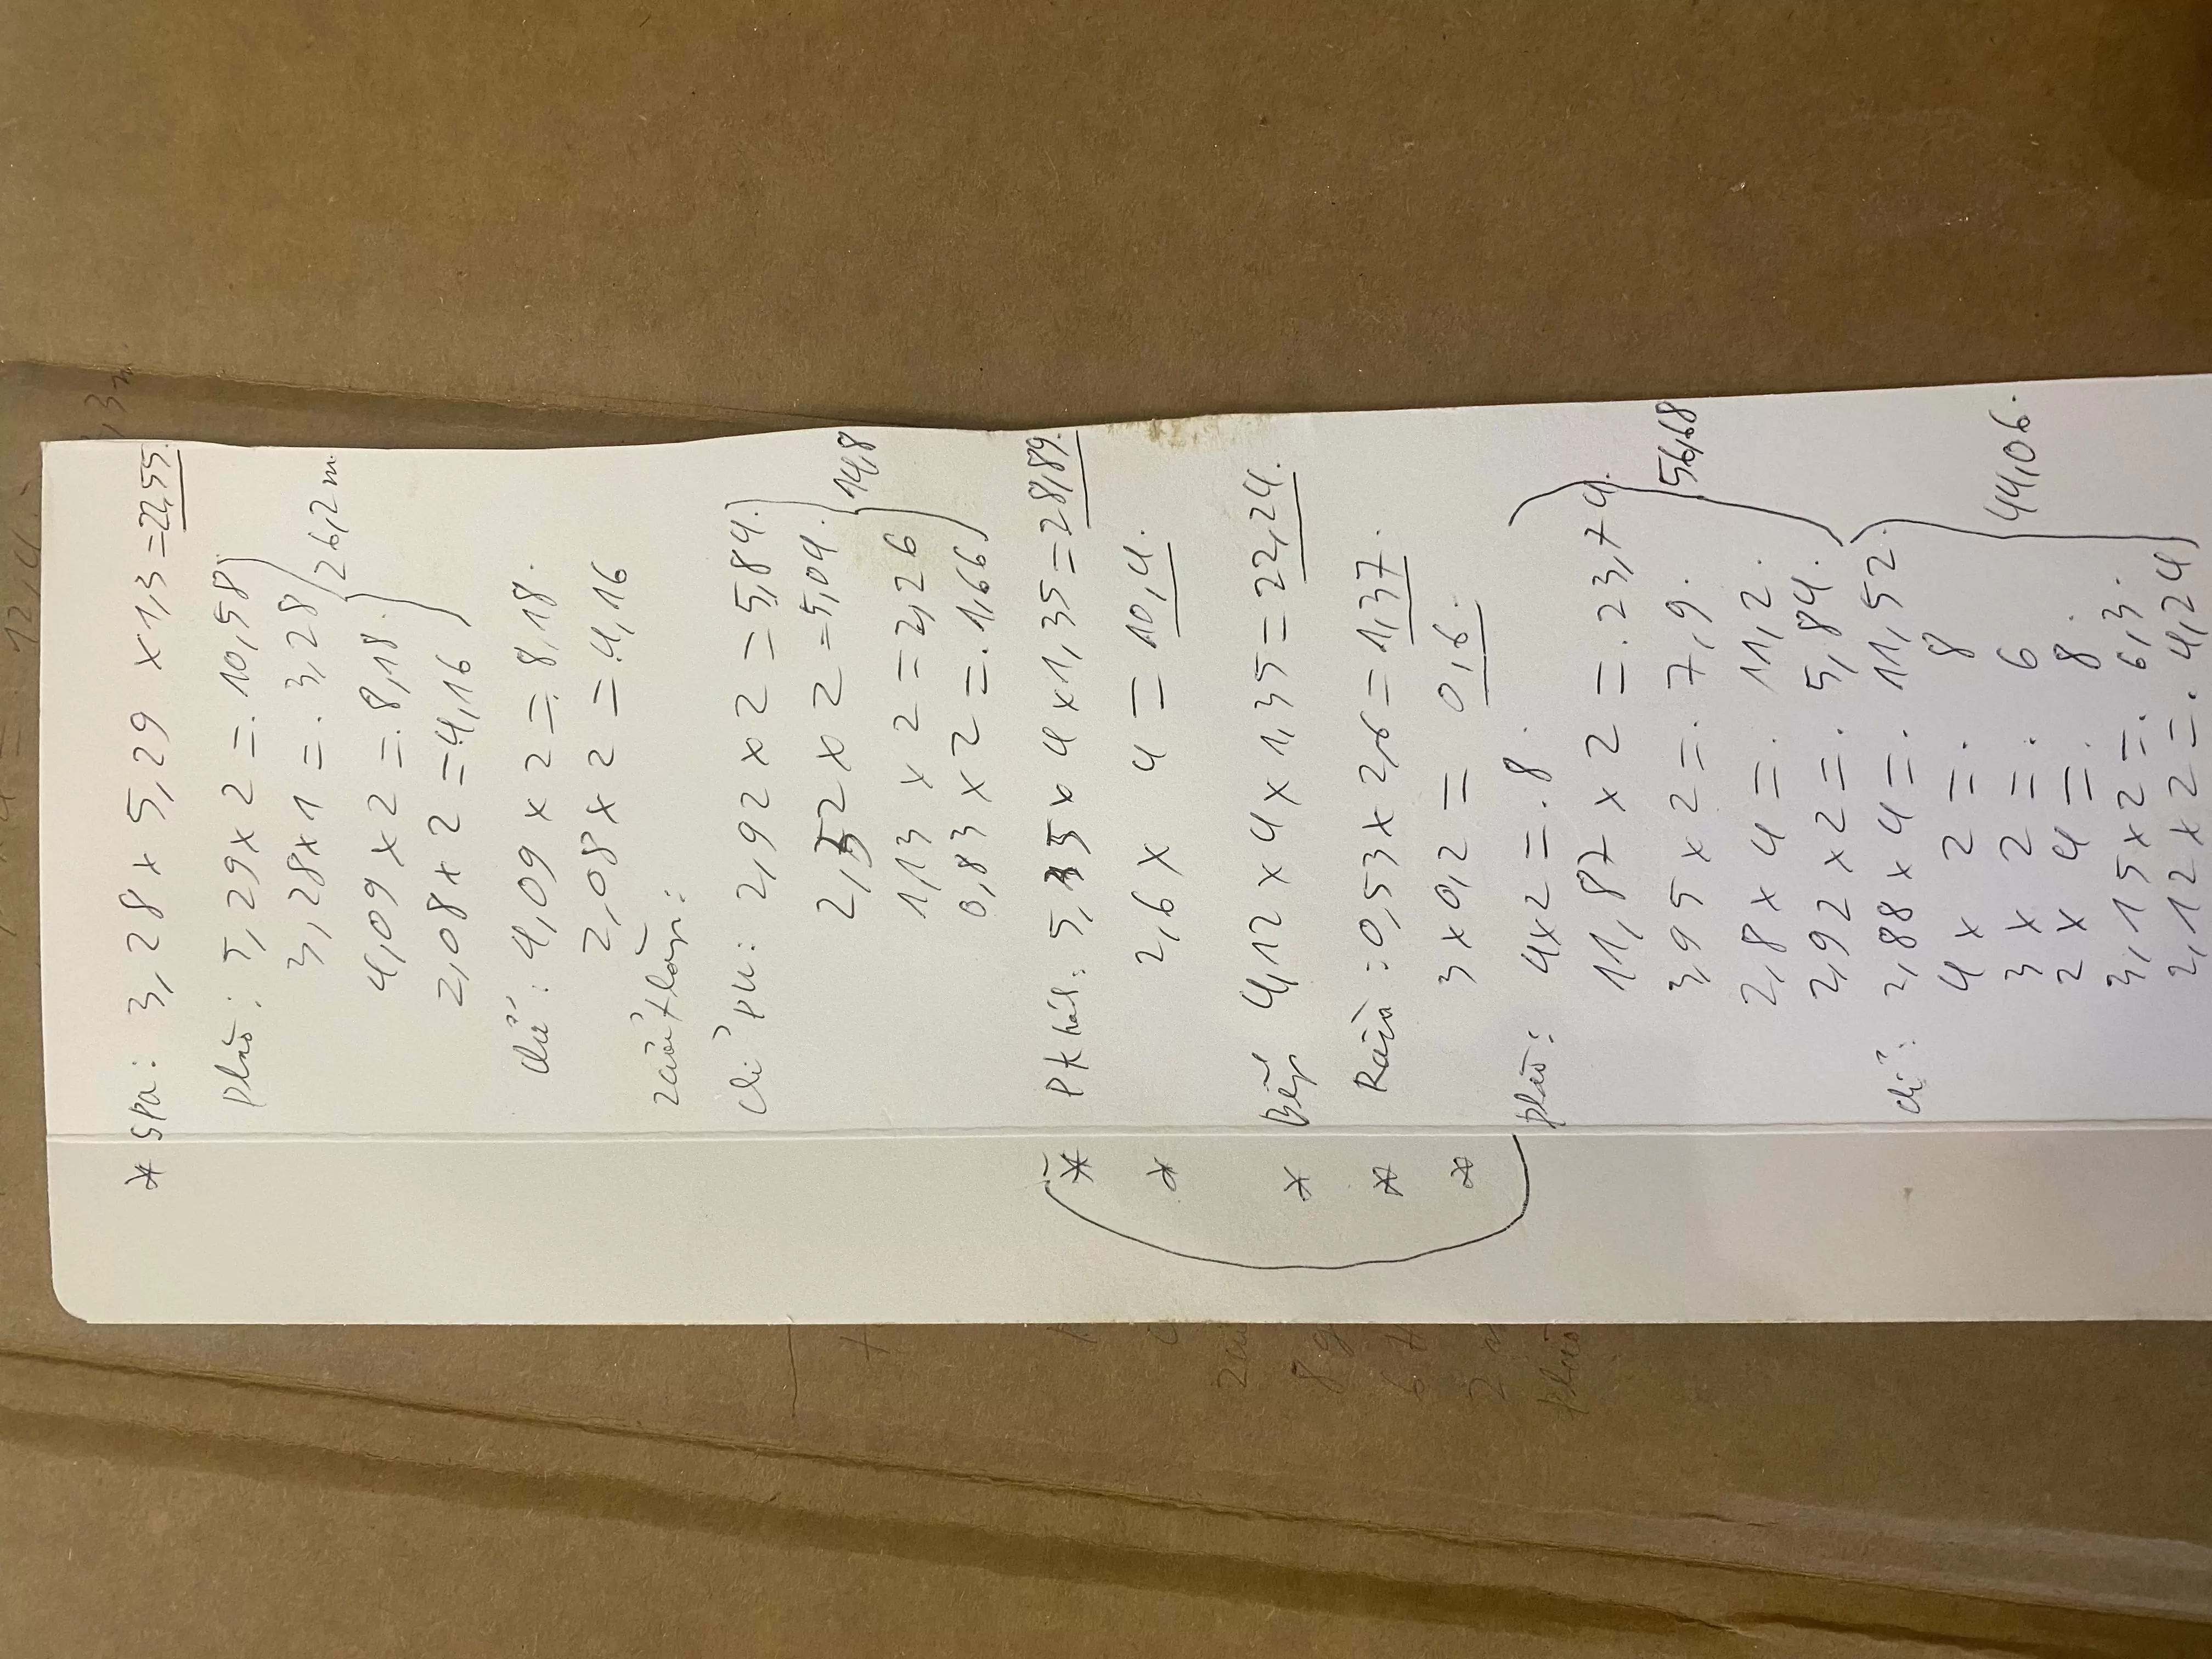 * Spa: 3,28 x 5,29 x 1,3 = 22,55.
Phào: 5,29 x 2 =. 10,58
3,28 x 1 =. 3,28
4,09 x 2 =. 8,18.
2,08 x 2 = 4,16
26,2m
chỉ: 4,09 x 2 =. 8,18.
2,08 x 2 =. 4,16
chỉ PU: 2,92 x 2 = 5,84.
2,52 x 2 = 5,04.
1,13 x 2 = 2,26
0,83 x 2 =. 1,66
14,8
* PK hát: 5,35 x 4 x 1,35 = 28,89.
* 2,6 x 4 = 10,4.
* Bếp 4,12 x 4 x 1,35 = 22,24.
* 0,53 x 2,6 = 1,37.
* 3 x 0,2 = 0,6.
phào: 4 x 2 =. 8.
11,87 x 2 =. 23,74.
3,95 x 2 =. 7,9.
2,8 x 4 =. 11,2.
2,92 x 2 =. 5,84.
56,68
chỉ: 2,88 x 4 =. 11,52.
4 x 2 =. 8
3 x 2 =. 6
2 x 4 =. 8.
3,15 x 2 =. 6,3.
2,12 x 2 =. 4,24
44,06.